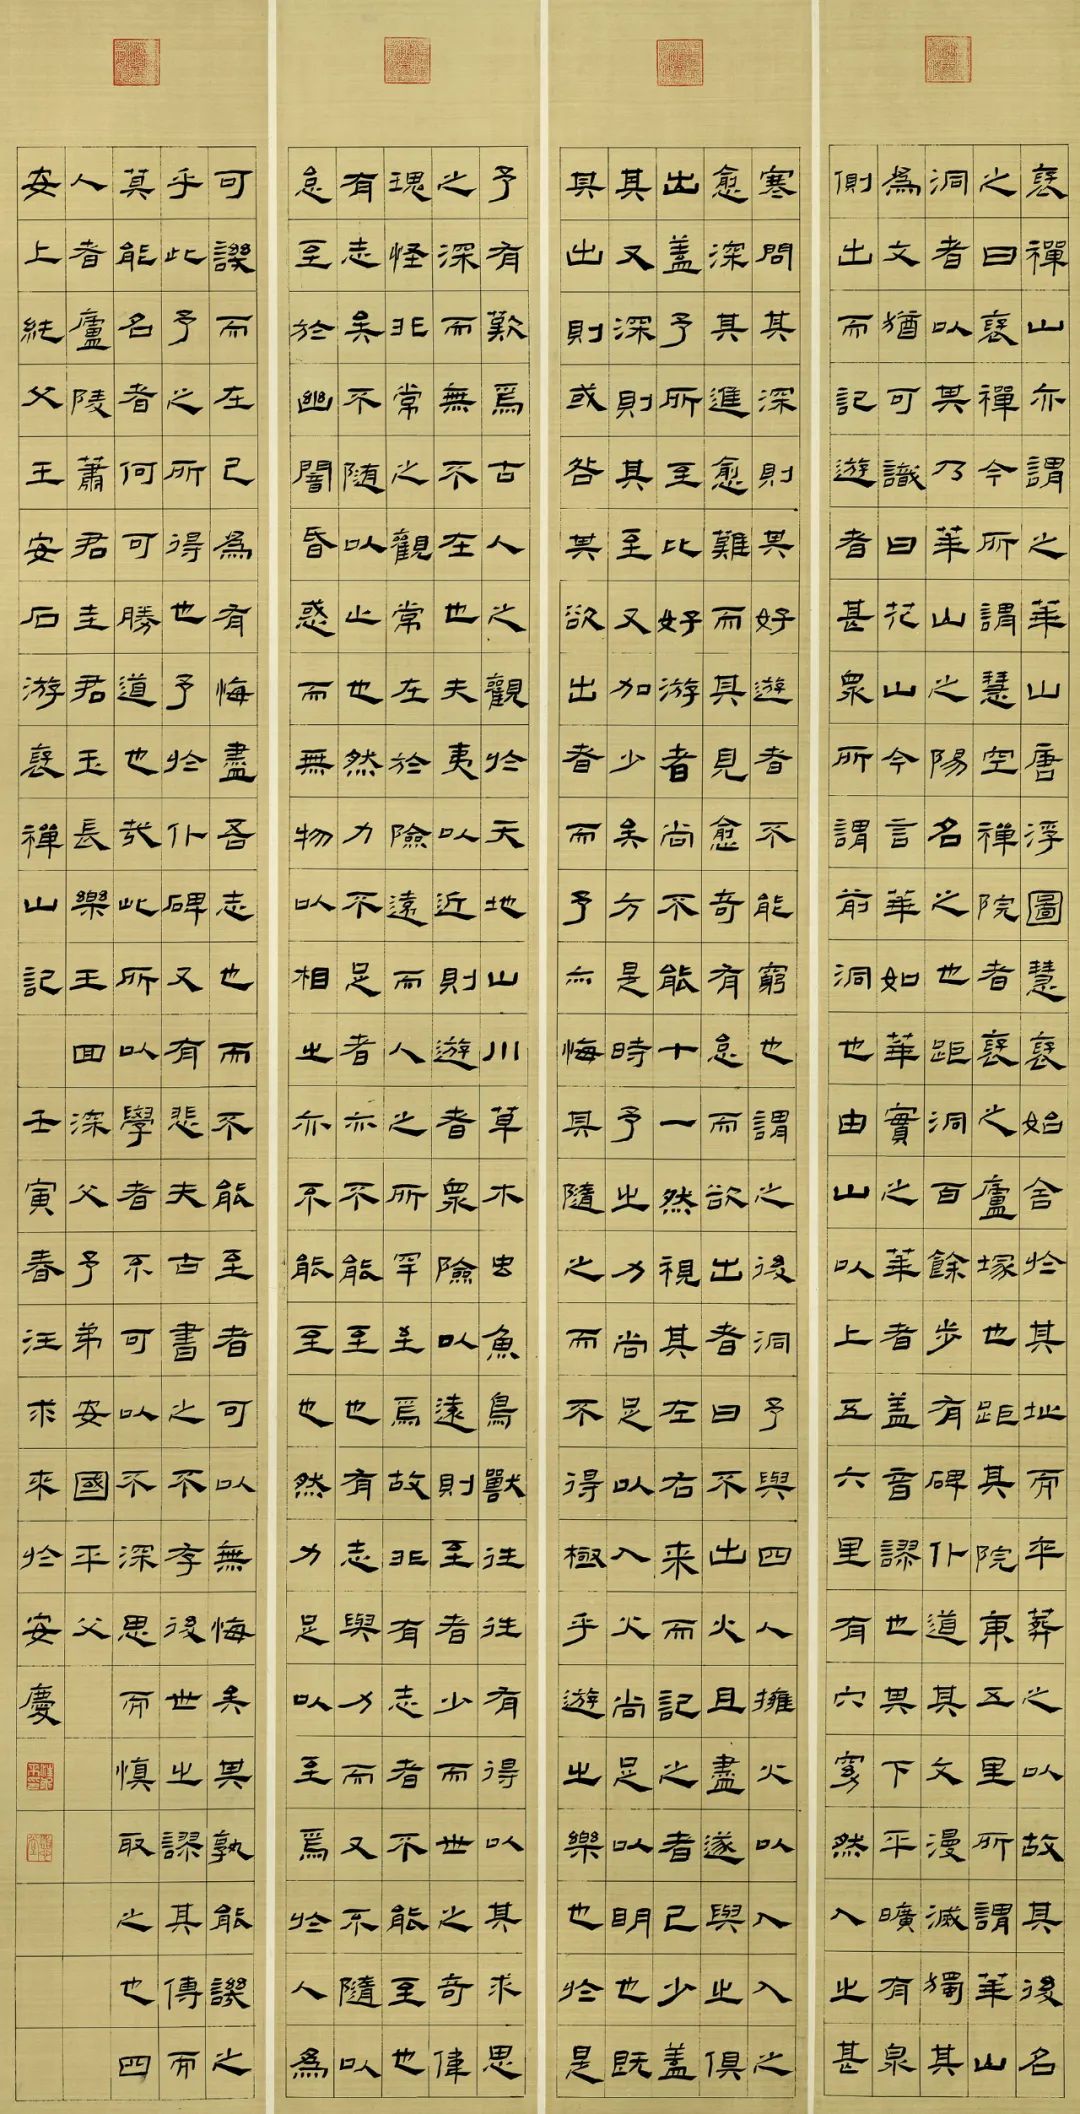 褒禪山亦謂之華山唐浮圖慧褒始舍於其址而卒葬之以故其後名
之曰褒禪今所謂慧空禪院者褒之廬塚也距其院東五里所謂華山
洞者以其乃華山之陽名之也距洞百餘步有碑仆道其文漫滅獨其
爲文猶可識曰花山今言華如華實之華者盖音謬也其下平曠有泉
側出而記遊者甚眾所謂前洞也由山以上五六里有穴窈然入之甚
寒問其深則其好遊者不能窮也謂之後洞予與四人擁火以入入之
愈深其進愈難而其見愈奇有怠而欲出者曰不出火且盡遂與之俱
出盖予所至比好游者尚不能十一然視其左右来而記之者已少盖
其又深則其至又加少矣方是時予之力尚足以入火尚足以明也既
其出則或咎其欲出者而予亦悔其隨之而不得極乎遊之樂也於是
予有歎焉古人之觀於天地山川草木虫魚鳥獸往往有得以其求思
之深而無不在也夫夷以近則遊者眾險以遠則至者少而世之奇偉
瑰怪非常之觀常在於險遠而人之所罕至焉故非有志者不能至也
有志矣不随以止也然力不足者亦不能至也有志與力而又不隨以
怠至於幽闇昏惑而無物以相之亦不能至也然力足以至焉於人爲
可譏而在己爲有悔盡吾志也而不能至者可以無悔矣其孰能譏之
乎此予之所得也予於仆碑又有悲夫古書之不存後世之謬其傳而
莫能名者何可勝道也哉此所以學者不可以不深思而慎取之也四
人者廬陵蕭君圭君玉長樂王回深父予弟安國平父
安上純父王安石游褒禪山記 壬寅春汪求來於安慶